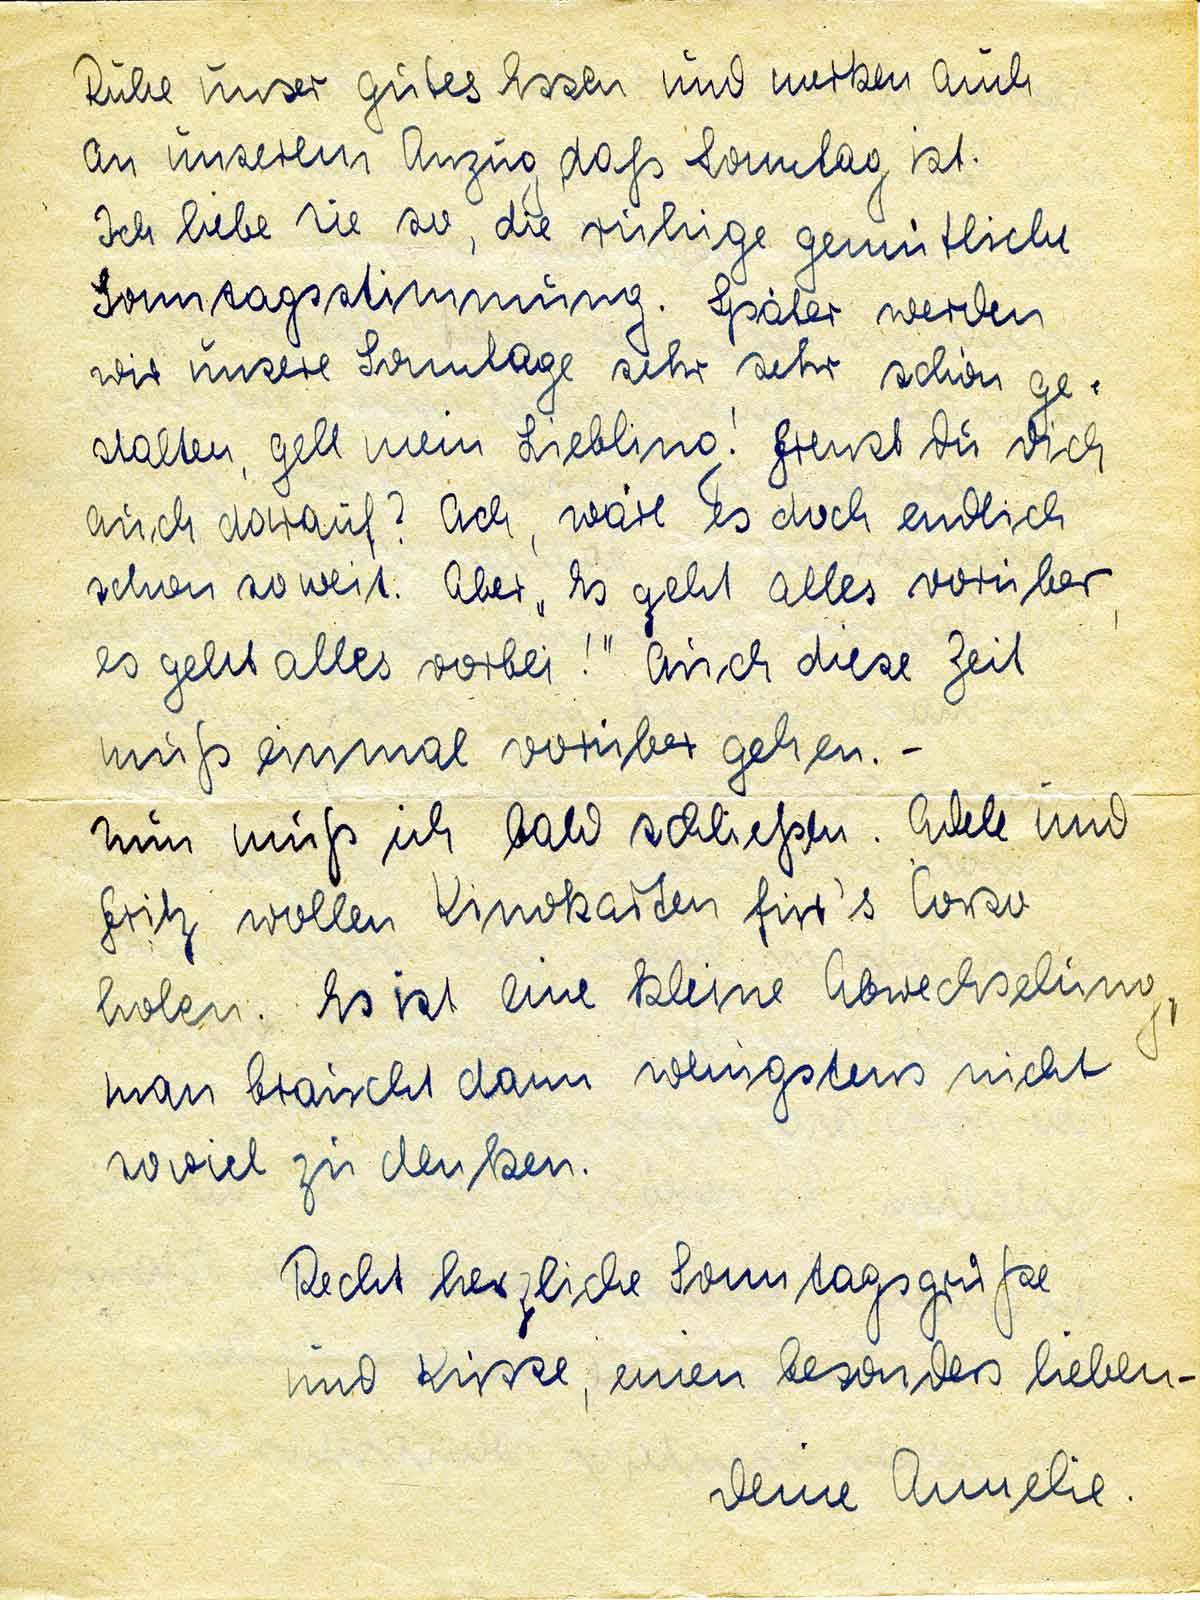 Ruhe unser gutes Essen und merken auch
an unserem Anzug, daß Sonntag ist.
Ich liebe sie so, die ruhige gemütliche
Sonntagsstimmung. Später werden
wir unsere Sonntage sehr sehr schön ge-
stalten, gell mein Liebling! Freust Du Dich
auch darauf? Ach, wäre es doch endlich
schon soweit. Aber „Es geht alles vorüber,
es geht alles vorbei!" Auch diese Zeit
muß einmal vorüber gehen. -
Nun muß ich bald schließen. Adele und
Fritz wollen Kinokarten für's Corso
holen. Es ist eine kleine Abwechselung,
man braucht dann wenigstens nicht
soviel zu denken.
Recht herzliche Sonntagsgrüße
und Küsse, einen besonders lieben -
Deine Annelie.